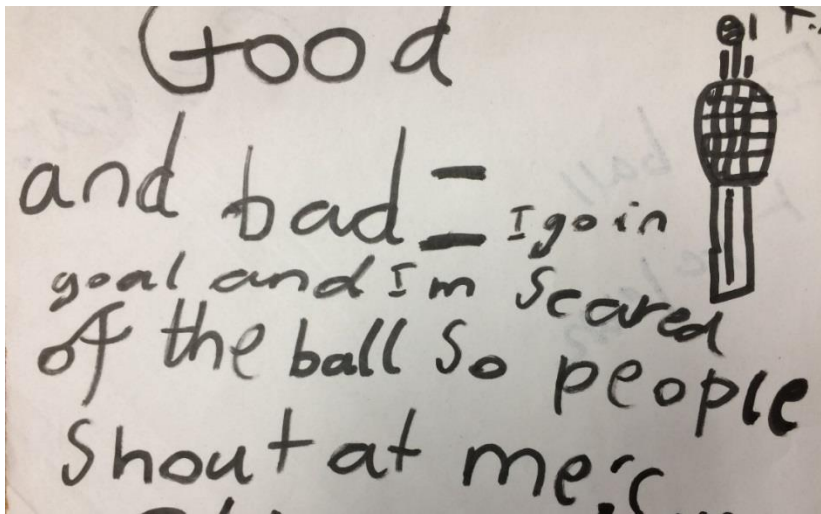 Good
and bad =
I go in
goal and I'm scared
of the ball so people
shout at me :(